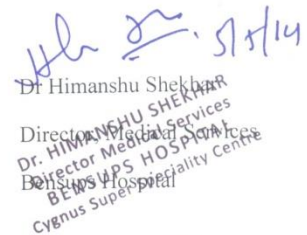 5/5/14
Dr Himanshu Shekhar
Director, Medical Services
Bensups Hospital
Dr. HIMANSHU SHEKHAR
Director Medical Services
BENSUPS HOSPITAL
Cygnus Super Speciality Centre